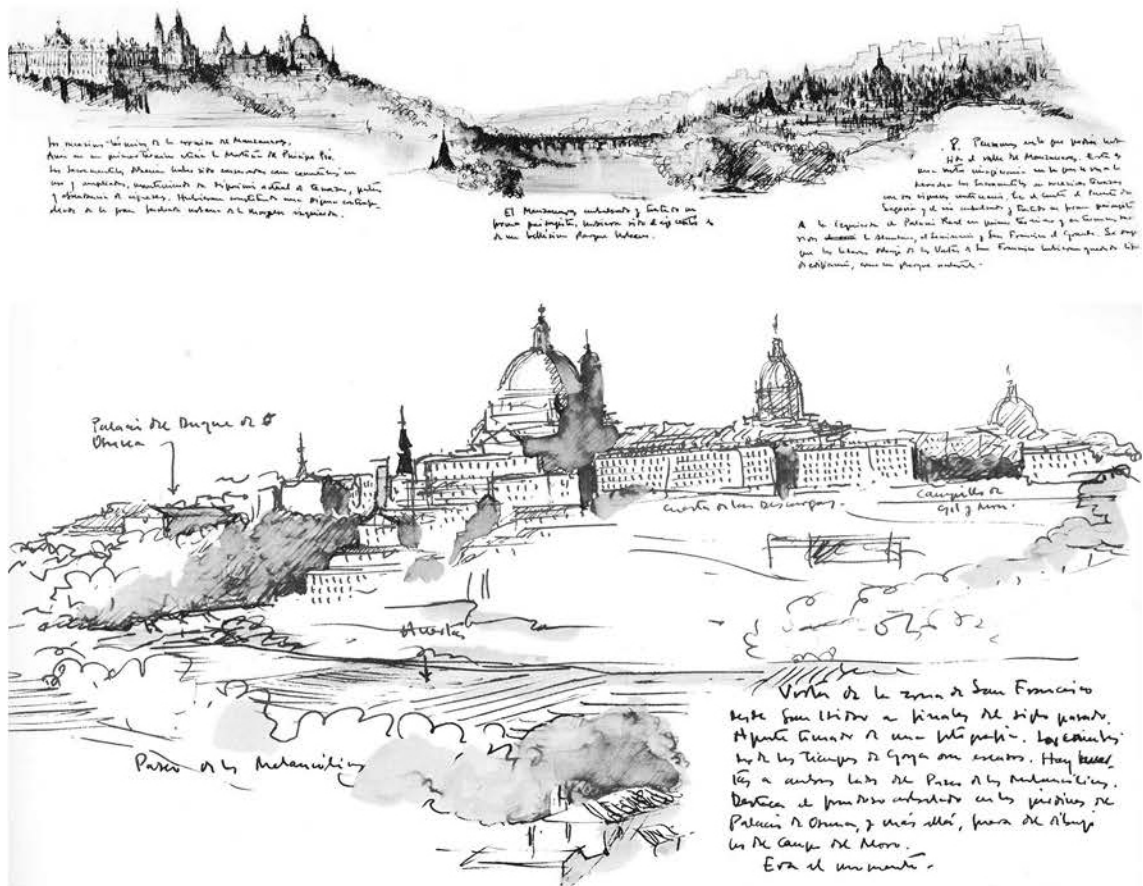 de la cornisa de Manzanares.
en un primer término la Montaña de Príncipe Pío.
Las Sacramentales haber sido
uso y ampliados, manteniendo su disposición actual de terrazas, patios
y abundancia de cipreses. Hubieran constituido una digna
de la gran fachada urbana de la margen izquierda.
El Manzanares embalsado y tratado en
forma paisajista, hubiera sido el eje central
de un bellísimo parque urbano.
P. que podía haber
sido el valle del Manzanares. Esta es
una vista imaginaria en la que se ven a la
derecha las Sacramentales en terrazas
con sus cipreses centenarios, En el centro el Puente de
Segovia y el río embalsado y tratado en forma paisajista
A la izquierda el Palacio Real en primer término y en términos
la Almudena, el Seminario y San Francisco el Grande. Se
que las laderas debajo de las Vistillas a San Francisco hubieran quedado
de edificación, como un parque natural.
Palacio del Duque de
Osuna
Cuesta de las Descargas.
Campillo de
Gil y Mon.
Huertas
Paseo de los Melancólicos
Vista de la zona de San Francisco
desde San Isidro a finales del siglo pasado.
Apunte tomado de una fotografía. Los cambios
de los tiempos de Goya son escasos. Hay huer-
tas a ambos lados del Paseo de los Melancólicos.
Destaca el frondoso arbolado en los jardines del
Palacio de Osuna, y más allá, fuera del dibujo
los del Campo del Moro.
Era el momento.